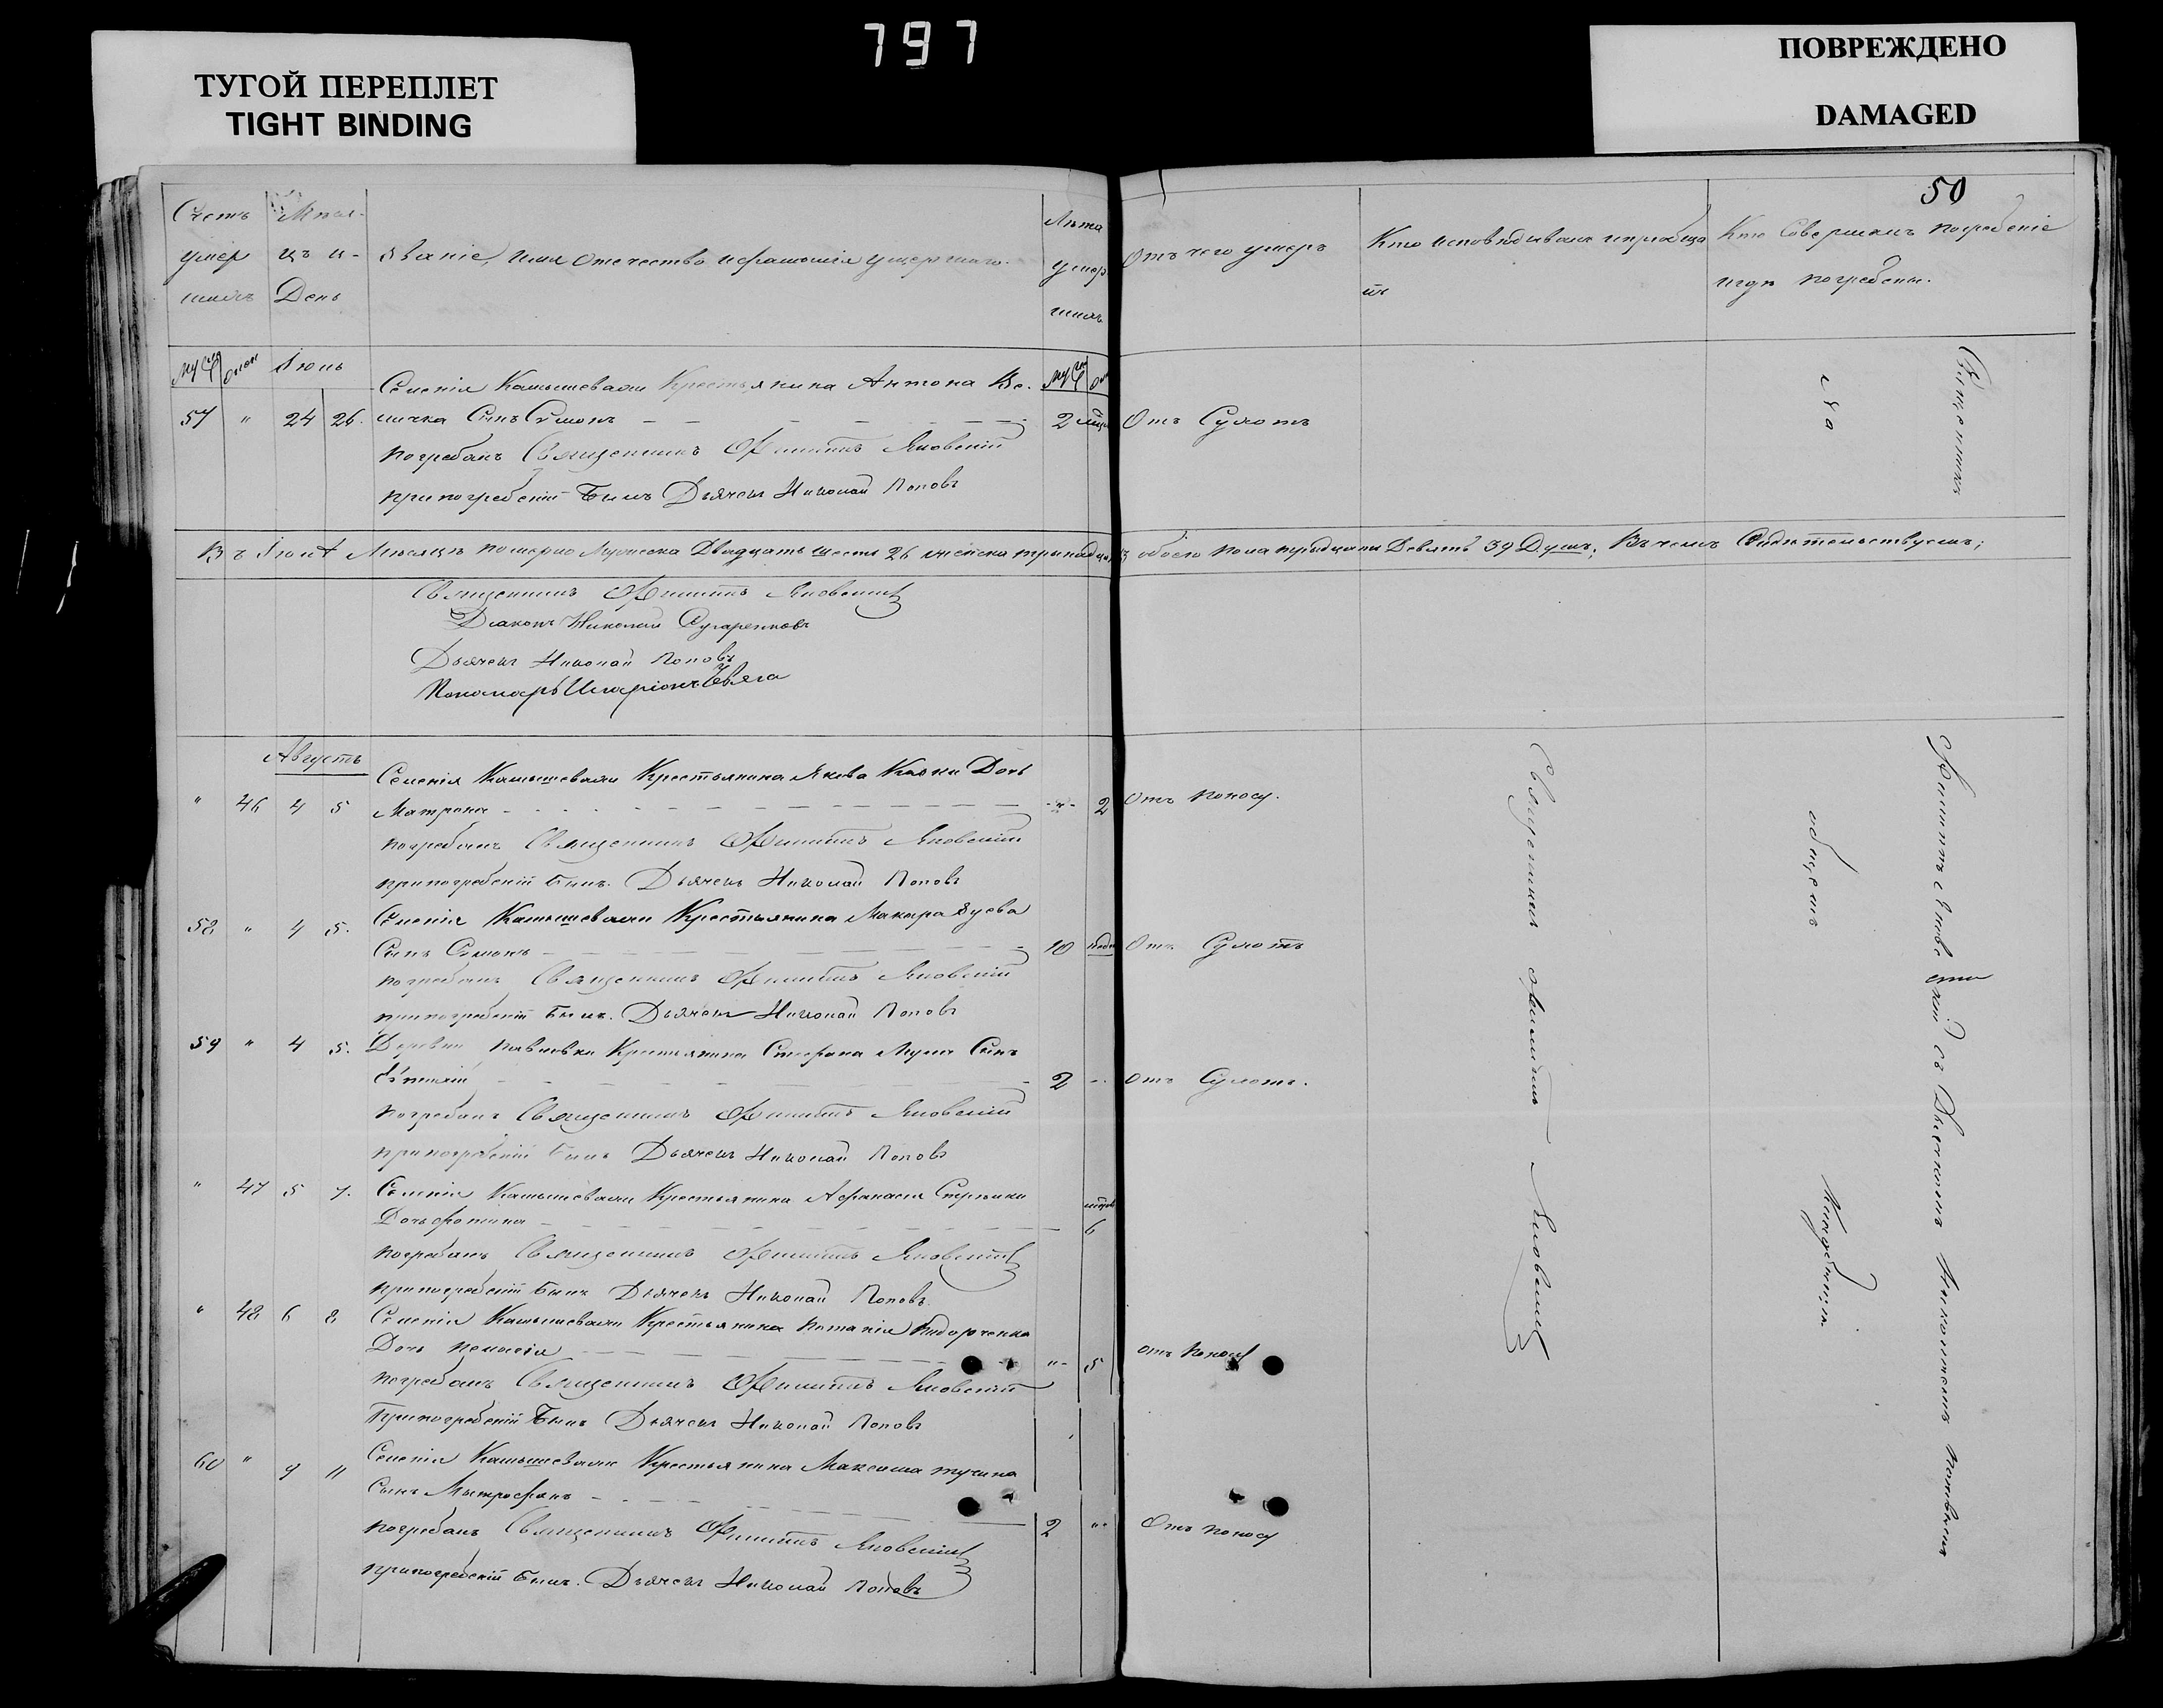 797
ТУГОЙ ПЕРЕПЛЕТ
TIGHT BINDING
ПОВРЕЖДЕНО
DAMAGED
50
Счетъ умер шихъ
Мѣся- цъ и День
Званіе, имя отечество и фамилія умершаго.
Лѣта умер шихъ
Отъ чего умеръ
Кто исповѣдывалъ и пріобща лъ
Кто Совершалъ погребеніе и гдѣ погребены.
Іюнь
Селенія Камышевахи Крестьянина Антона
57 " 24 26. Сынъ Симонъ 2 Отъ Сухотъ
погребалъ Священникъ Филиппъ Яновскій
при погребеніи Былъ Дьячекъ Николай Поповъ
Мѣсяцѣ померло Мужеска Двадцать шесть 26 женска тринадцать обоего пола тридцать Девять 39 Душъ; Въ чемъ Свидѣтельствуемъ;
Священникъ Филиппъ Яновскій
Діаконъ Николай
Дьячекъ Николай Поповъ
Пономарь Иларіонъ
Августъ
Селенія Камышевахи Крестьянина Якова Дочь
" 46 4 5 Матрона - " - 2 Отъ поносу.
погребалъ Священникъ Филиппъ Яновскій
при погребеніи Былъ. Дьячекъ Николай Поповъ
58 " 4 5. Селенія Камышевахи Крестьянина Макара Зуева
Сынъ Симонъ 10 Отъ Сухотъ
погребалъ Священникъ Филиппъ Яновскій
при погребеніи Былъ. Дьячекъ Николай Поповъ
59 " 4 5. Деревни Павловки Крестьянина Стефана Сынъ
2 Отъ Сухотъ.
погребалъ Священникъ Филиппъ Яновскій
при погребеніи Былъ Дьячекъ Николай Поповъ
" 47 5 7. Селенія Камышевахи Крестьянина Афанасія
Дочь Фотина 6
погребалъ Священникъ Филиппъ Яновскій
при погребеніи Былъ Дьячекъ Николай Поповъ.
" 48 6 8 Селенія Камышевахи Крестьянина
Дочь Пелагія " - 5 отъ поносу
погребалъ Священникъ Филиппъ Яновскій
При погребеніи Былъ Дьячекъ Николай Поповъ
60 " 9 11 Селенія Камышевахи Крестьянина Максима
Сынъ Митрофанъ
погребалъ Священникъ Филиппъ Яновскій 2 " Отъ поносу
при погребеніи Былъ. Дьячекъ Николай Поповъ
Священникъ Филиппъ Яновскій
на общемъ Кладбищѣ
Священникъ
Филиппъ Яновскій съ Дьячкомъ Николаемъ Поповымъ